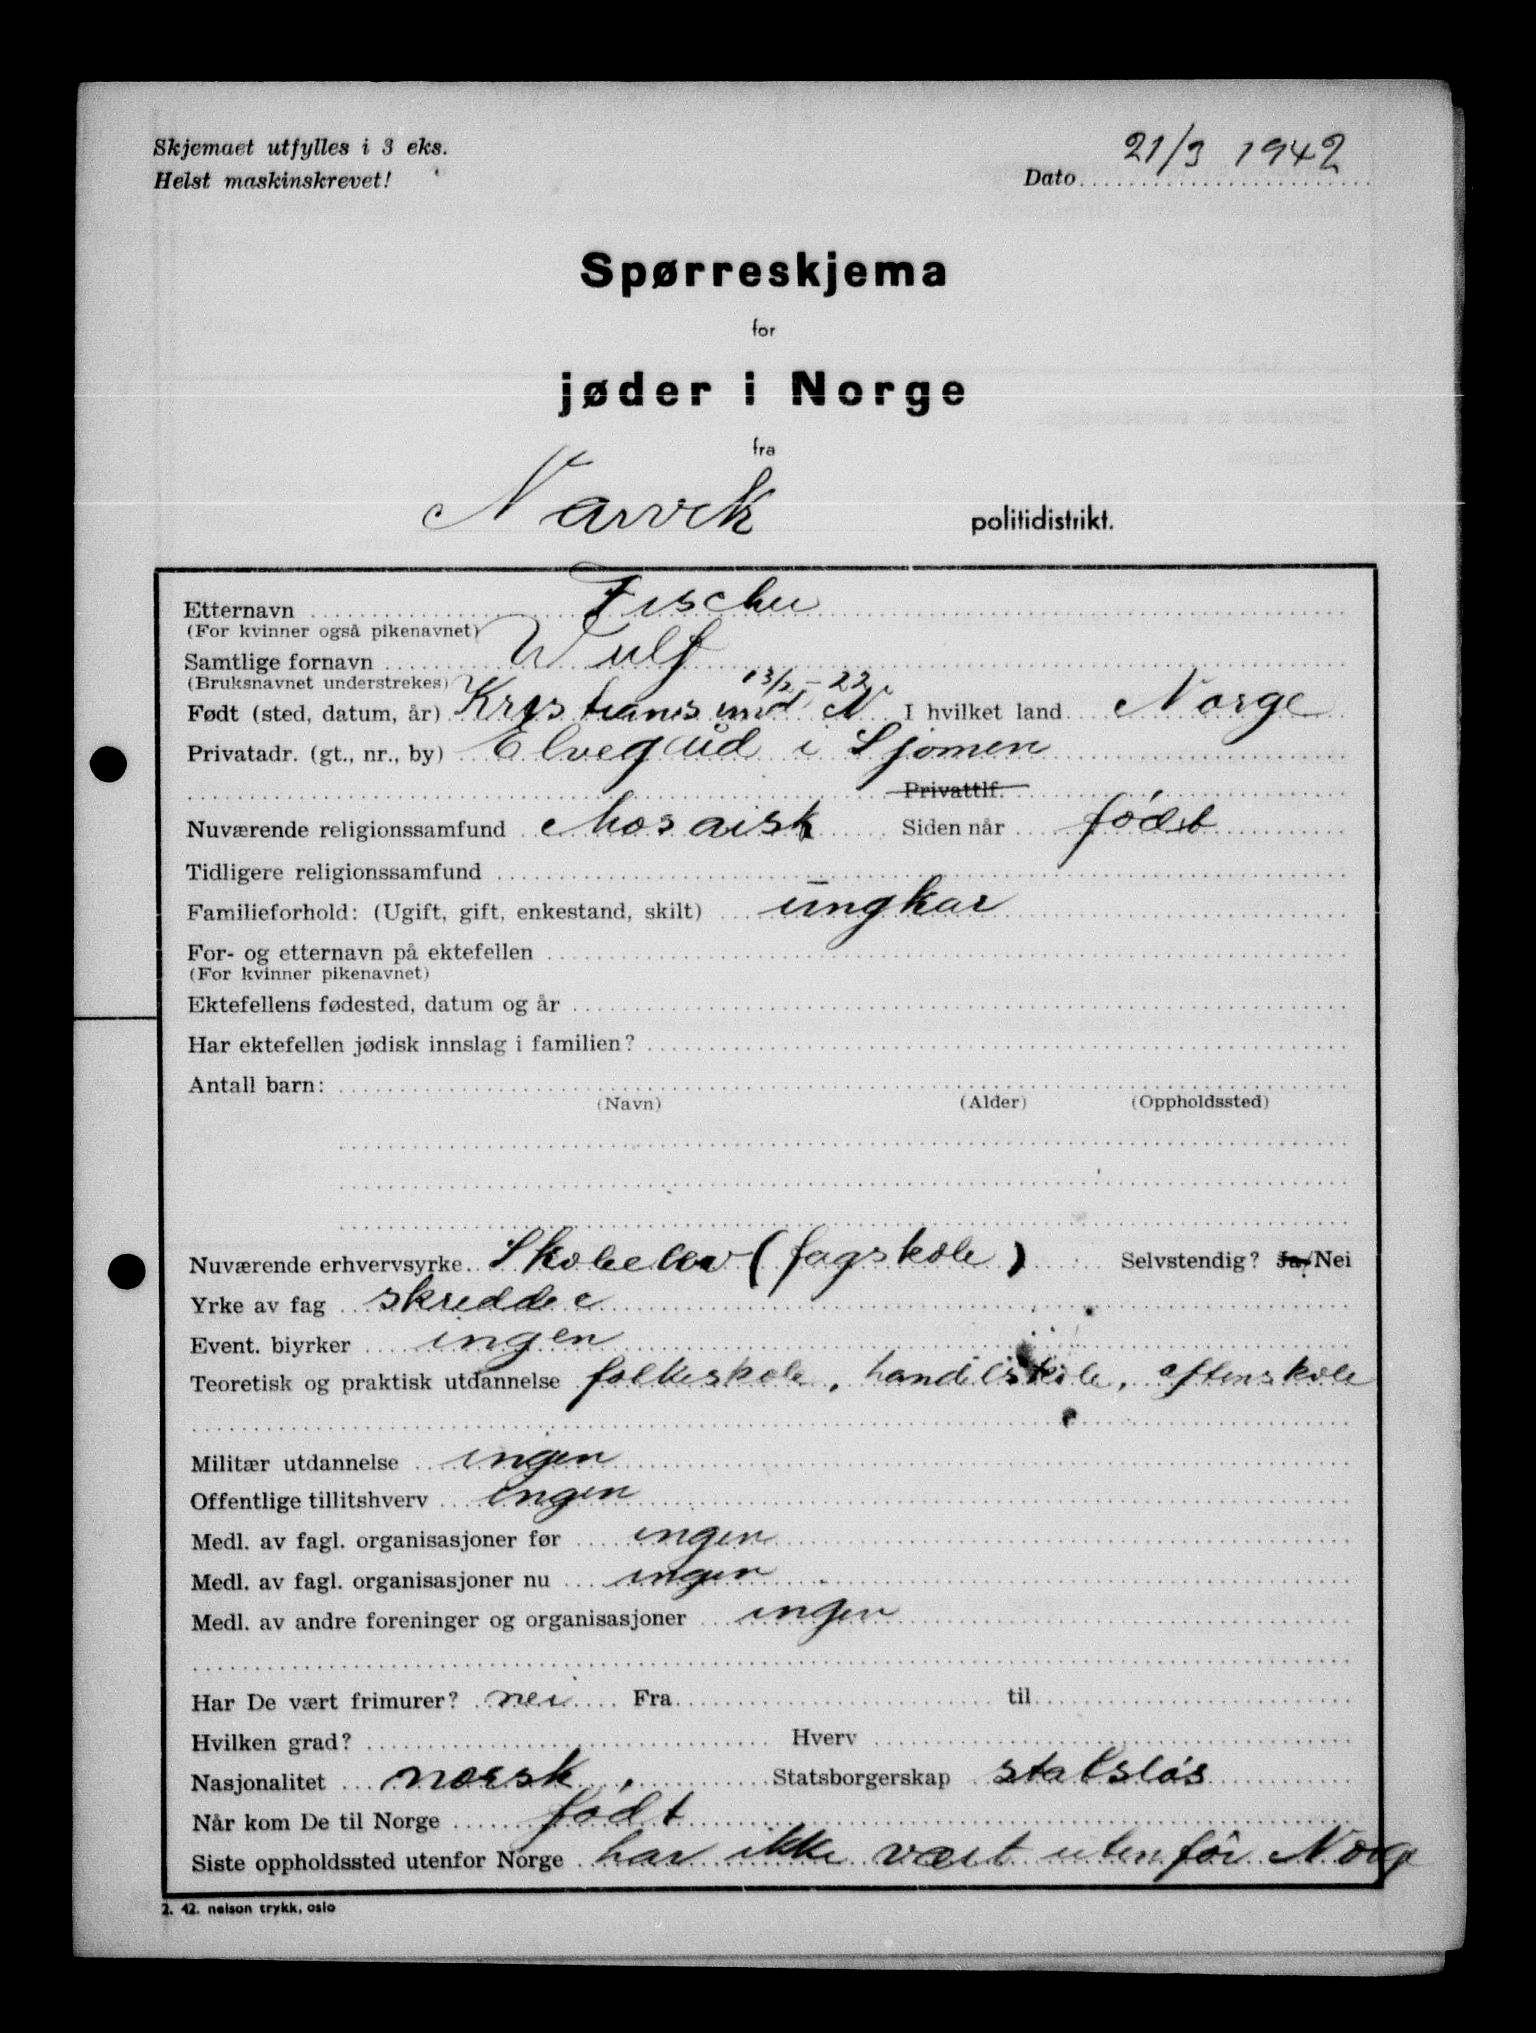 Skjemaet utfylles i 3 eks.
Helst maskinskrevet!
Dato 21/3 1942
Spørreskjema
for
jøder i Norge
fra
Narvik politidistrikt.
Etternavn Fischer
(For kvinner også pikenavnet)
Samtlige fornavn Wulf
(Bruksnavnet understrekes)
13/2-22
Født (sted, datum, år) Kristiansund N I hvilket land Norge
Privatadr. (gt., nr., by) Elvegård i Sjomen
Privattlf.
Nuværende religionssamfund Mosaisk Siden når født
Tidligere religionssamfund
Familieforhold: (Ugift, gift, enkestand, skilt) ungkar
For- og etternavn på ektefellen
(For kvinner pikenavnet)
Ektefellens fødested, datum og år
Har ektefellen jødisk innslag i familien?
Antall barn:
(Navn) (Alder) (Oppholdssted)
Nuværende erhvervsyrke Skoleelev (fagskole) Selvstendig? Ja/Nei
Yrke av fag skredder
Event. biyrker ingen
Teoretisk og praktisk utdannelse folkeskole, handelskole, aftenskole
Militær utdannelse ingen
Offentlige tillitshverv ingen
Medl. av fagl. organisasjoner før ingen
Medl. av fagl. organisasjoner nu ingen
Medl. av andre foreninger og organisasjoner ingen
Har De vært frimurer? nei Fra til
Hvilken grad? Hverv
Nasjonalitet norsk. Statsborgerskap statsløs
Når kom De til Norge født
Siste oppholdssted utenfor Norge har ikke vært utenfor Norge
2. 42. nelson trykk, oslo